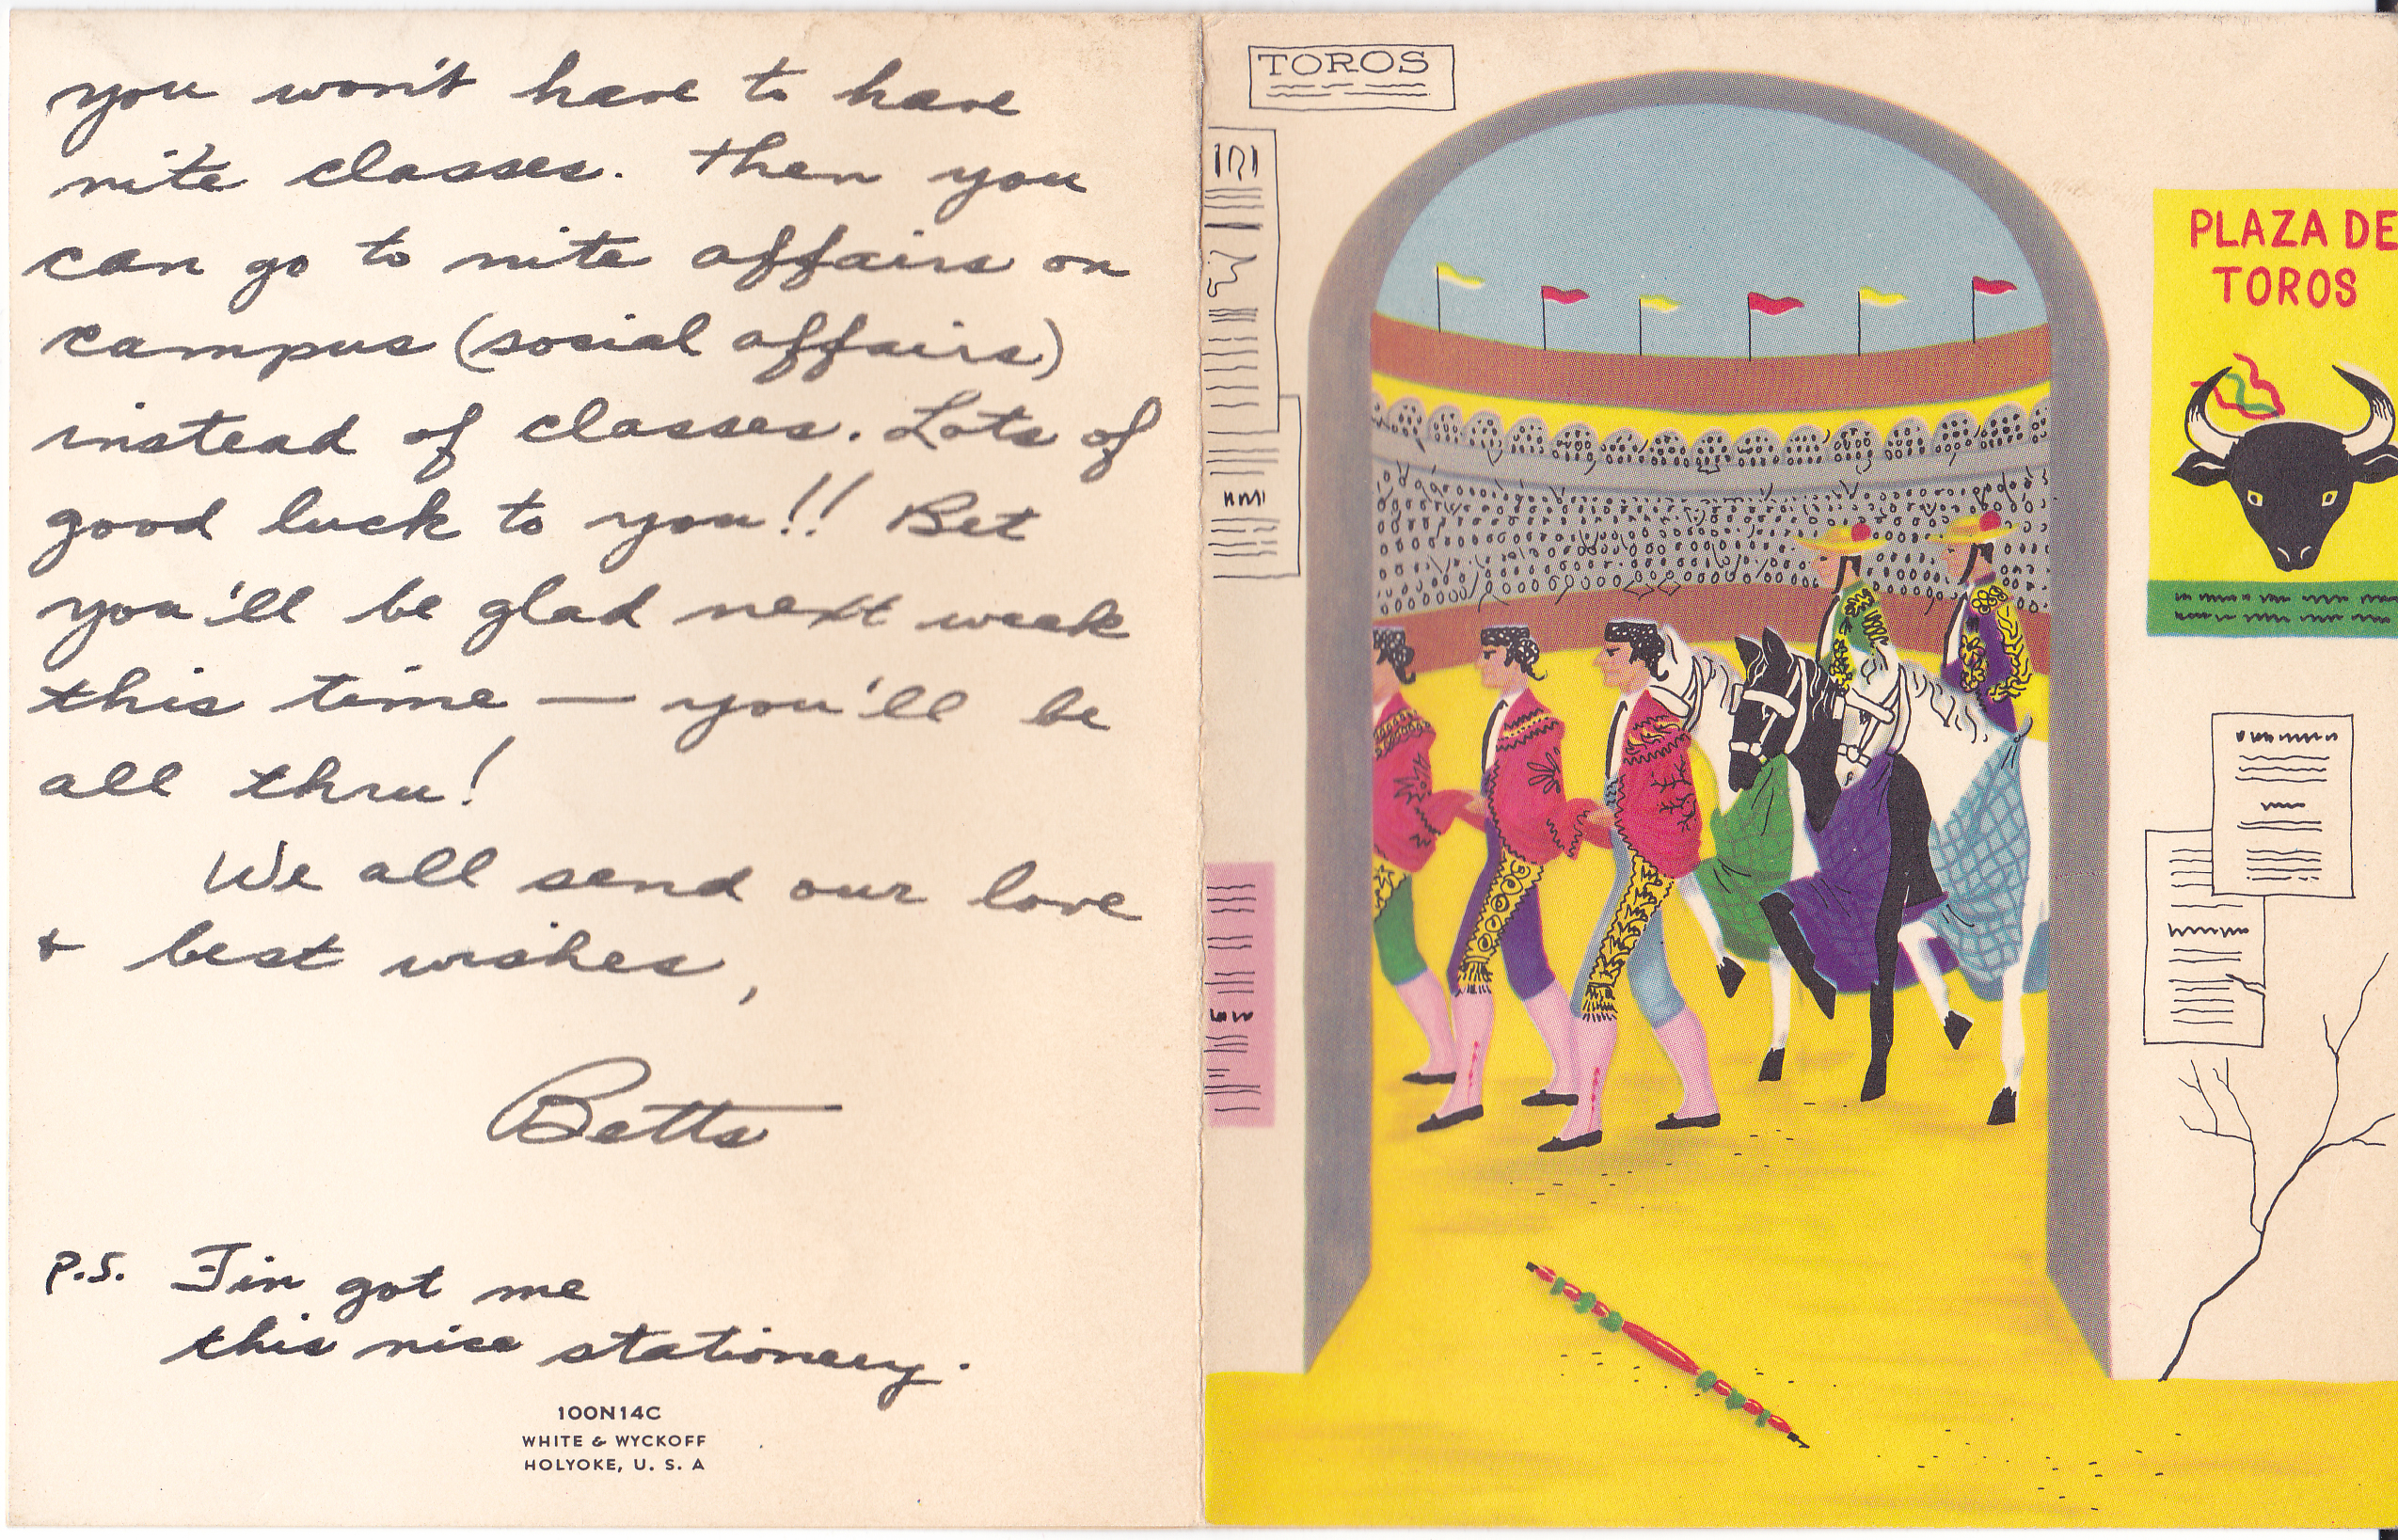 you won't have to have
nite classes. Then you
can go to nite affairs on
campus (social affairs)
instead of classes. Lots of
good luck to you!! Bet
you'll be glad next week
this time — you'll be
all thru!
We all send our love
+ best wishes,
Betts
P.S. Jin got me
this nice stationery.
100N14C
WHITE & WYCKOFF
HOLYOKE, U. S. A
TOROS
PLAZA DE
TOROS